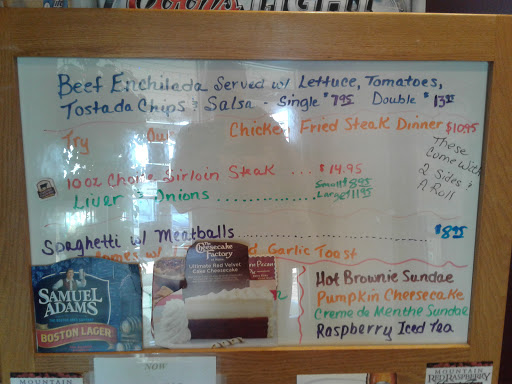 Beef Enchilada Served w/ Lettuce, Tomatoes,
Tostada Chips & Salsa - Single $7.95 Double $13.95
Try Our Chicken Fried Steak Dinner $10.95
These
Come With
2 Sides &
A Roll
10 oz Choice Sirloin Steak ... $14.95
Liver & Onions .............. Small $8.95
Large $11.95
Spaghetti w/ Meatballs .......................... $8.95
Comes w/ Garlic Toast
The Cheesecake Factory
Ultimate Red Velvet
Cake Cheesecake
Pecan
SAMUEL
ADAMS
BOSTON LAGER
Hot Brownie Sundae
Pumpkin Cheesecake
Creme de Menthe Sundae
Raspberry Iced Tea
MOUNTAIN
NOW
MOUNTAIN
RED RASPBERRY